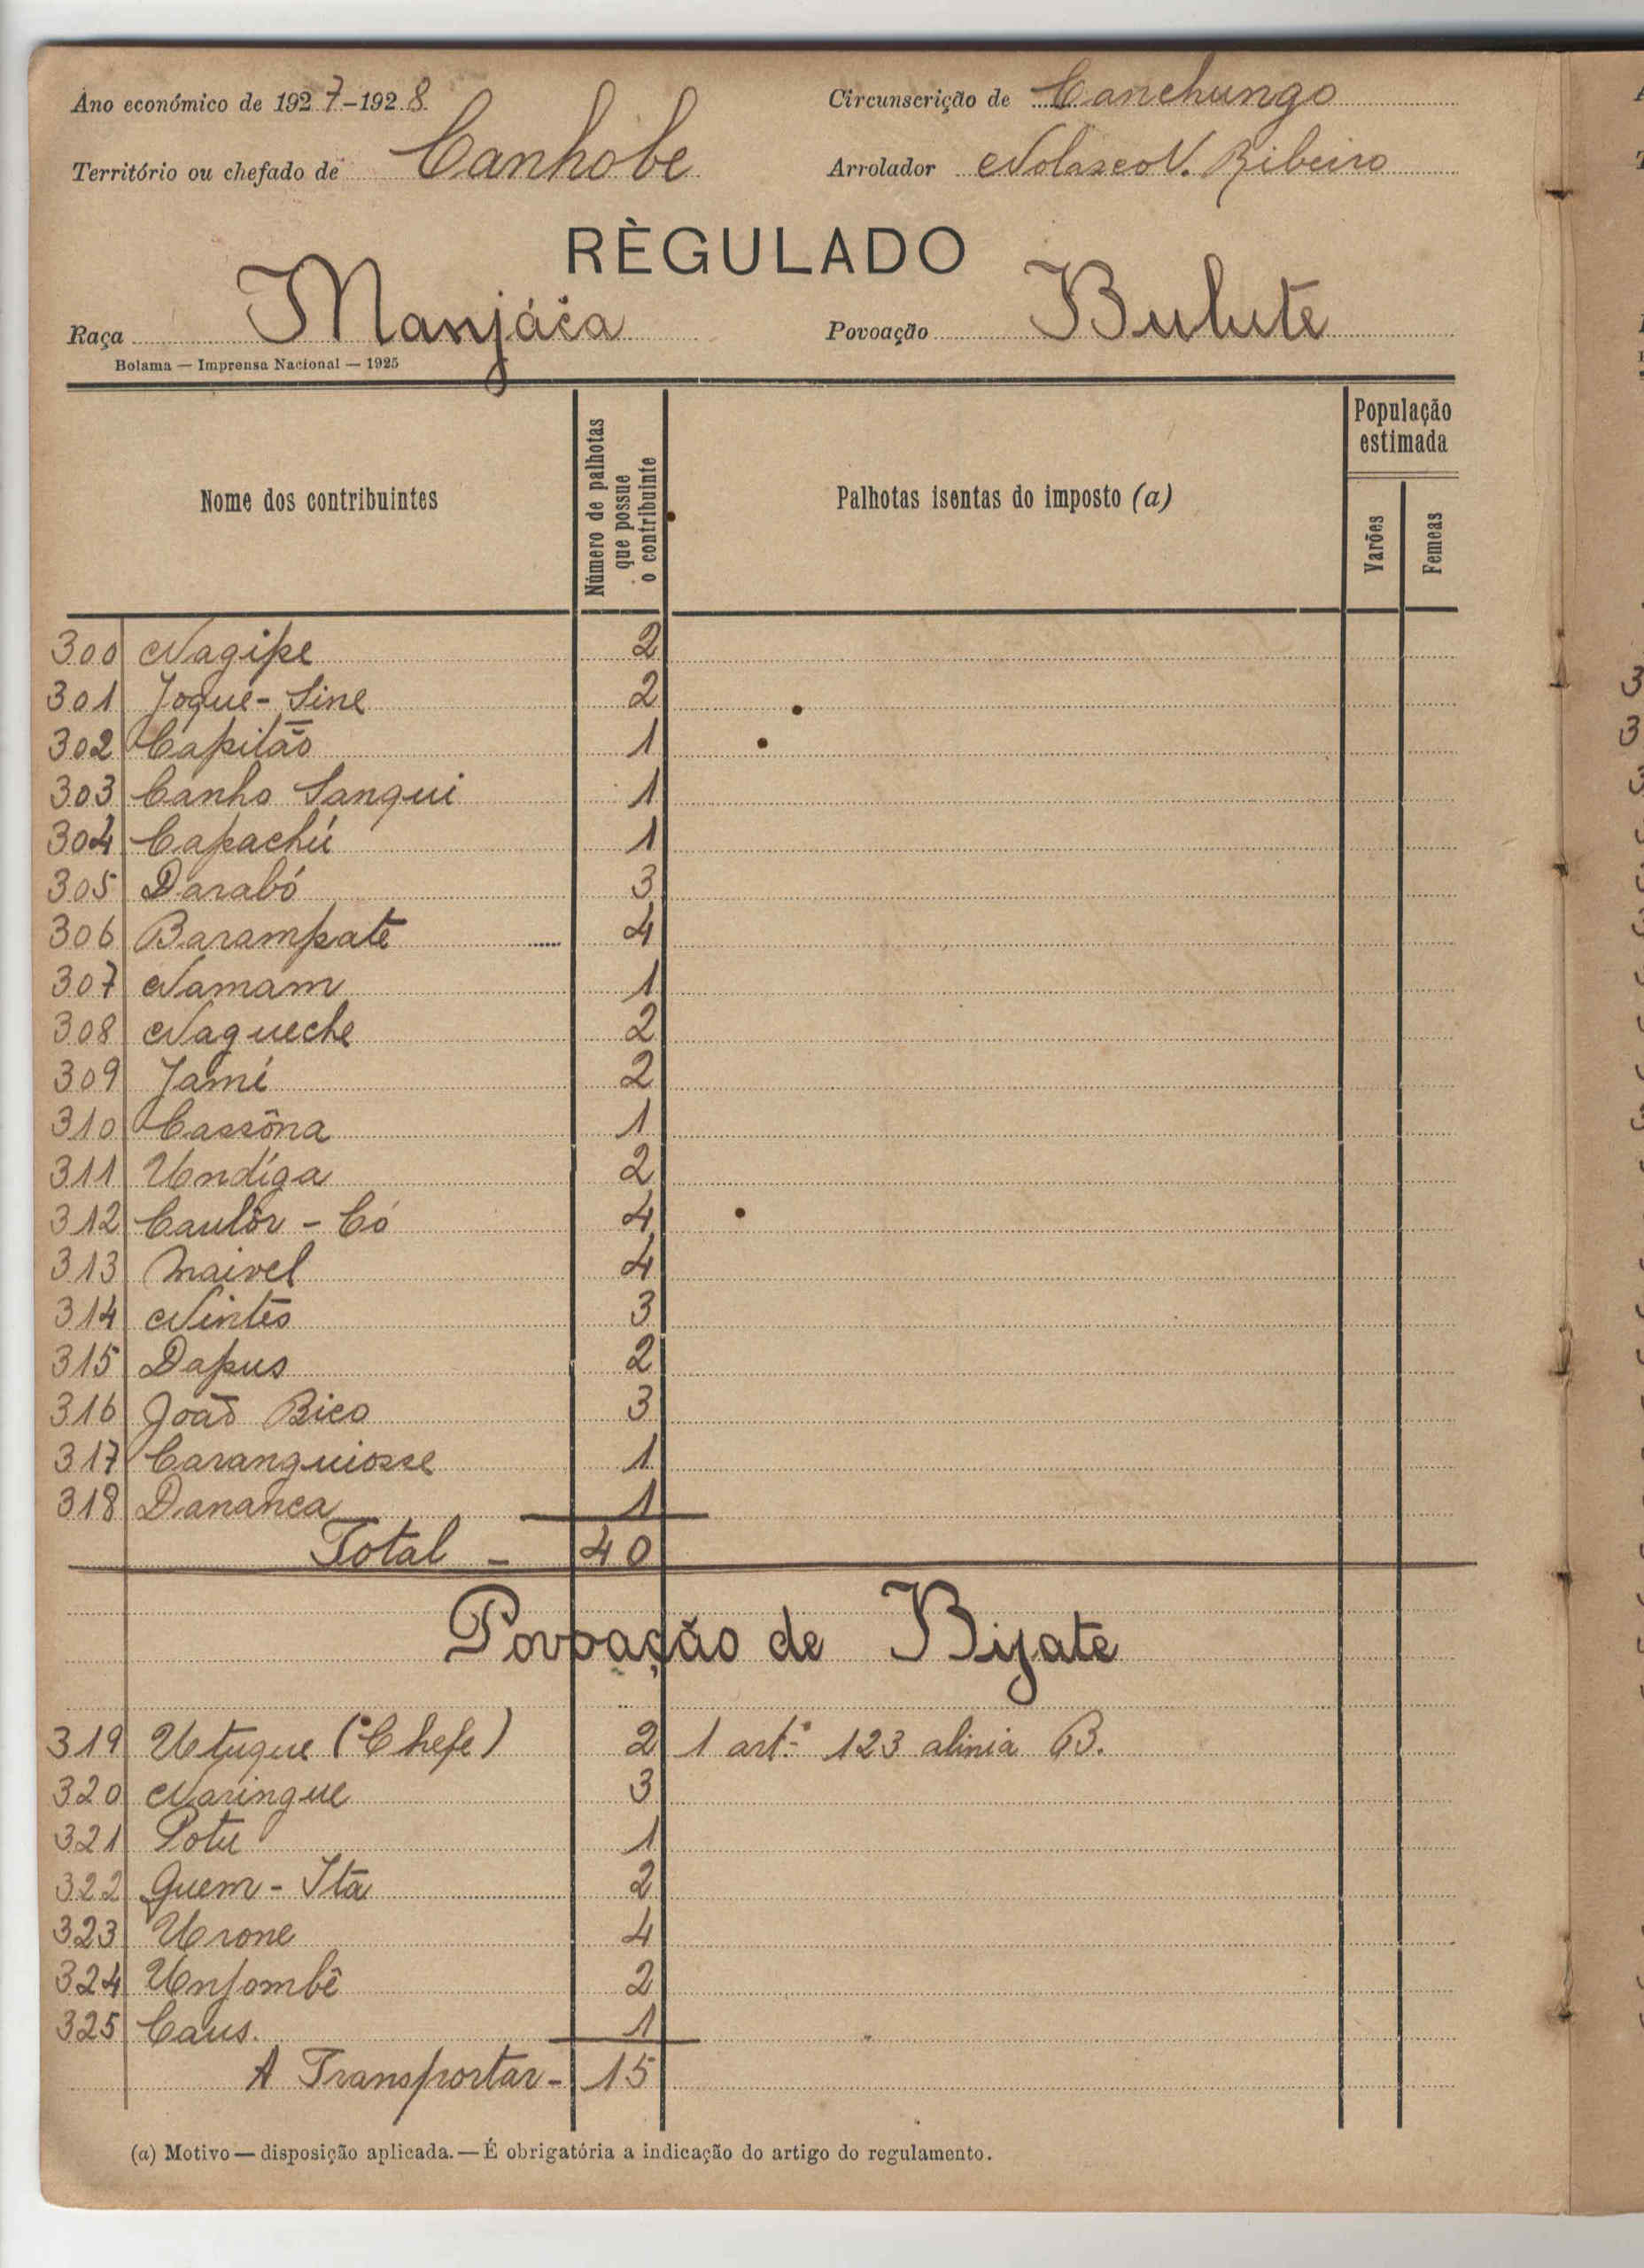 Ano económico de 1927-1928
Circunscrição de Canchungo
Território ou chefado de Canhobe
Arrolador Nolasco V. Ribeiro
RÈGULADO
Raça Manjáca
Povoação Bulute
Bolama — Imprensa Nacional — 1925
Nome dos contribuintes
Número de palhotas que possue o contribuinte
Palhotas isentas do imposto (a)
População estimada
Varões
Femeas
300 Nagipe 2
301 Joque-Sine 2
302 Capitão 1
303 Canho Sanqui 1
304 Capachú 1
305 Darabó 3
306 Barampate 4
307 Namam 1
308 Naqueche 2
309 Jamé 2
310 Cassôna 1
311 Undíga 2
312 Caulôr - Có 4
313 Maivel 4
314 Nintes 3
315 Dapus 2
316 João Bico 3
317 Caranguiosse 1
318 Dananca 1
Total - 40
Povoação de Bijate
319 Utuque (Chefe) 2 1 artº 123 alinia B.
320 Naringue 3
321 Potu 1
322 Quem-Ita 2
323 Urone 4
324 Unjombê 2
325 Caus. 1
A Transportar - 15
(a) Motivo — disposição aplicada. — É obrigatória a indicação do artigo do regulamento.